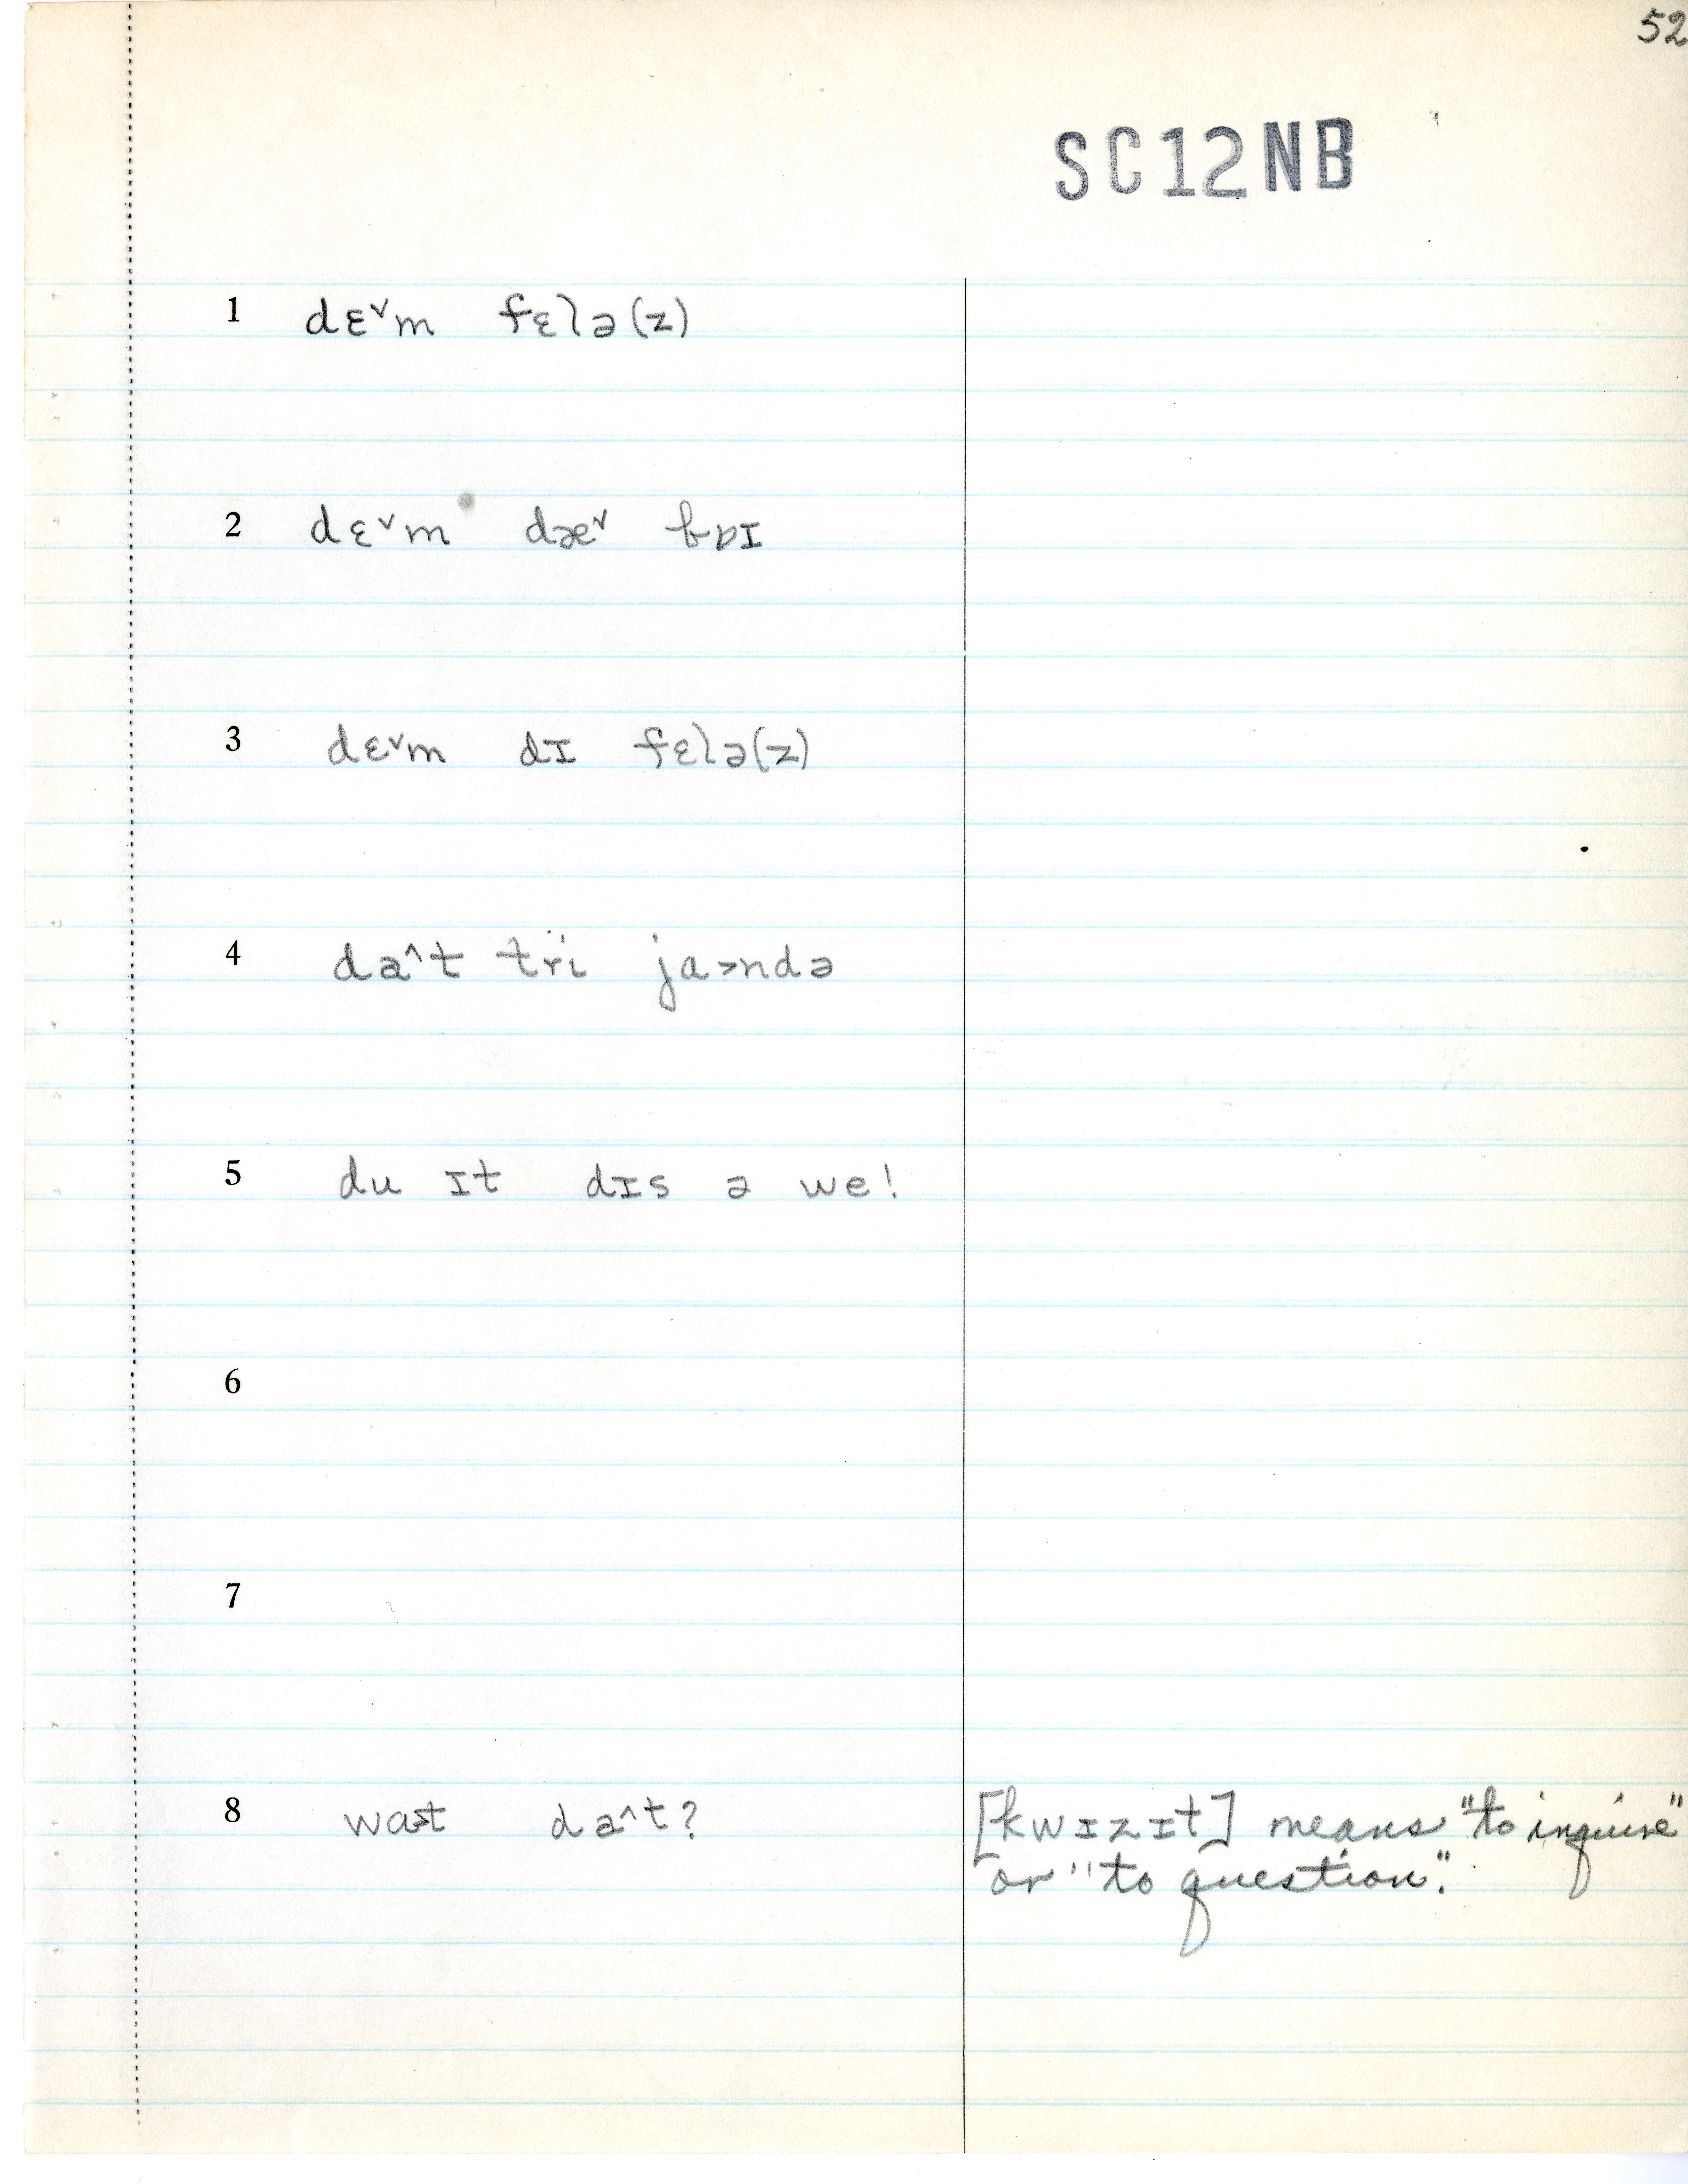 52
SC12NB
1 dɛ˅m fɛlə(z)
2 dɛ˅m dæ˅ bɒɪ
3 dɛ˅m dɪ fɛlə(z)
4 da^t tri ja>ndə
5 du ɪt dɪs ə we!
6
7
8 wa>t da^t? [kwɪzɪt] means "to inquire"
or "to question".